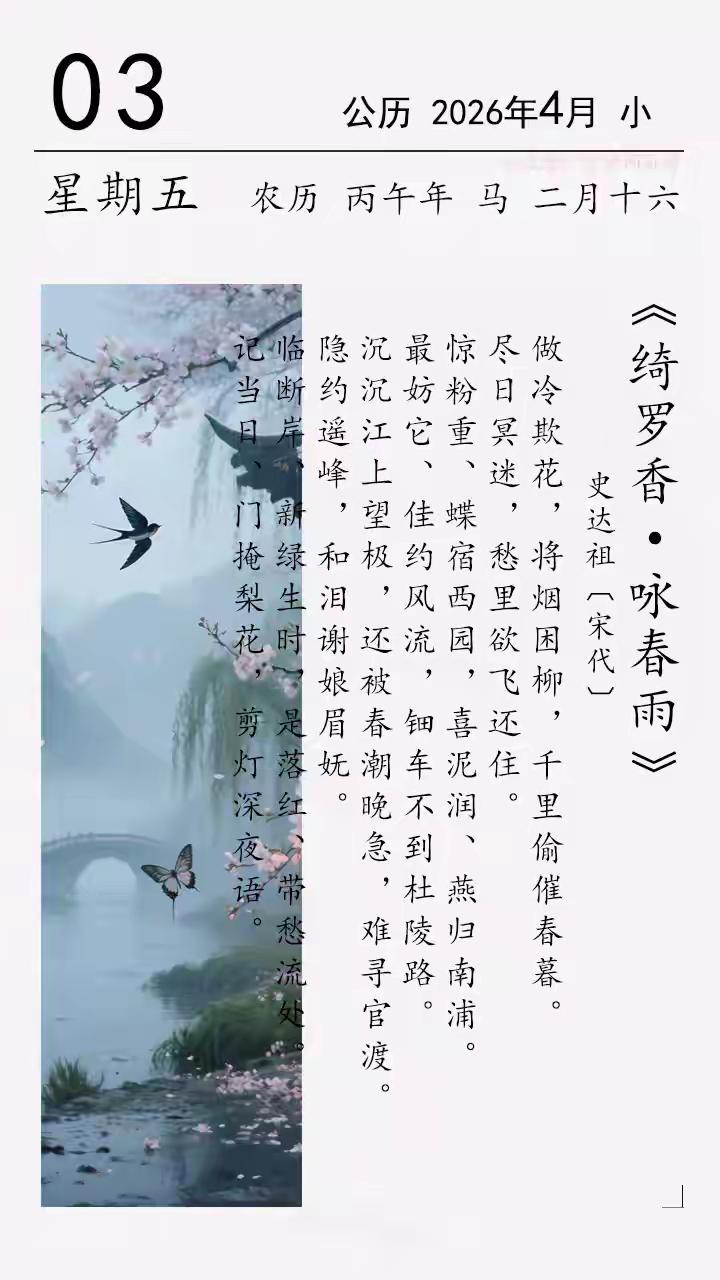 03
公历 2026年4月 小
星期五 农历 丙午年 马 二月十六
《绮罗香·咏春雨》
史达祖〔宋代〕
做冷欺花，将烟困柳，千里偷催春暮。
尽日冥迷，愁里欲飞还住。
惊粉重、蝶宿西园，喜泥润、燕归南浦。
最妨它、佳约风流，钿车不到杜陵路。
沉沉江上望极，还被春潮晚急，难寻官渡。
隐约遥峰，和泪谢娘眉妩。
临断岸、新绿生时，是落红、带愁流处。
记当日、门掩梨花，剪灯深夜语。